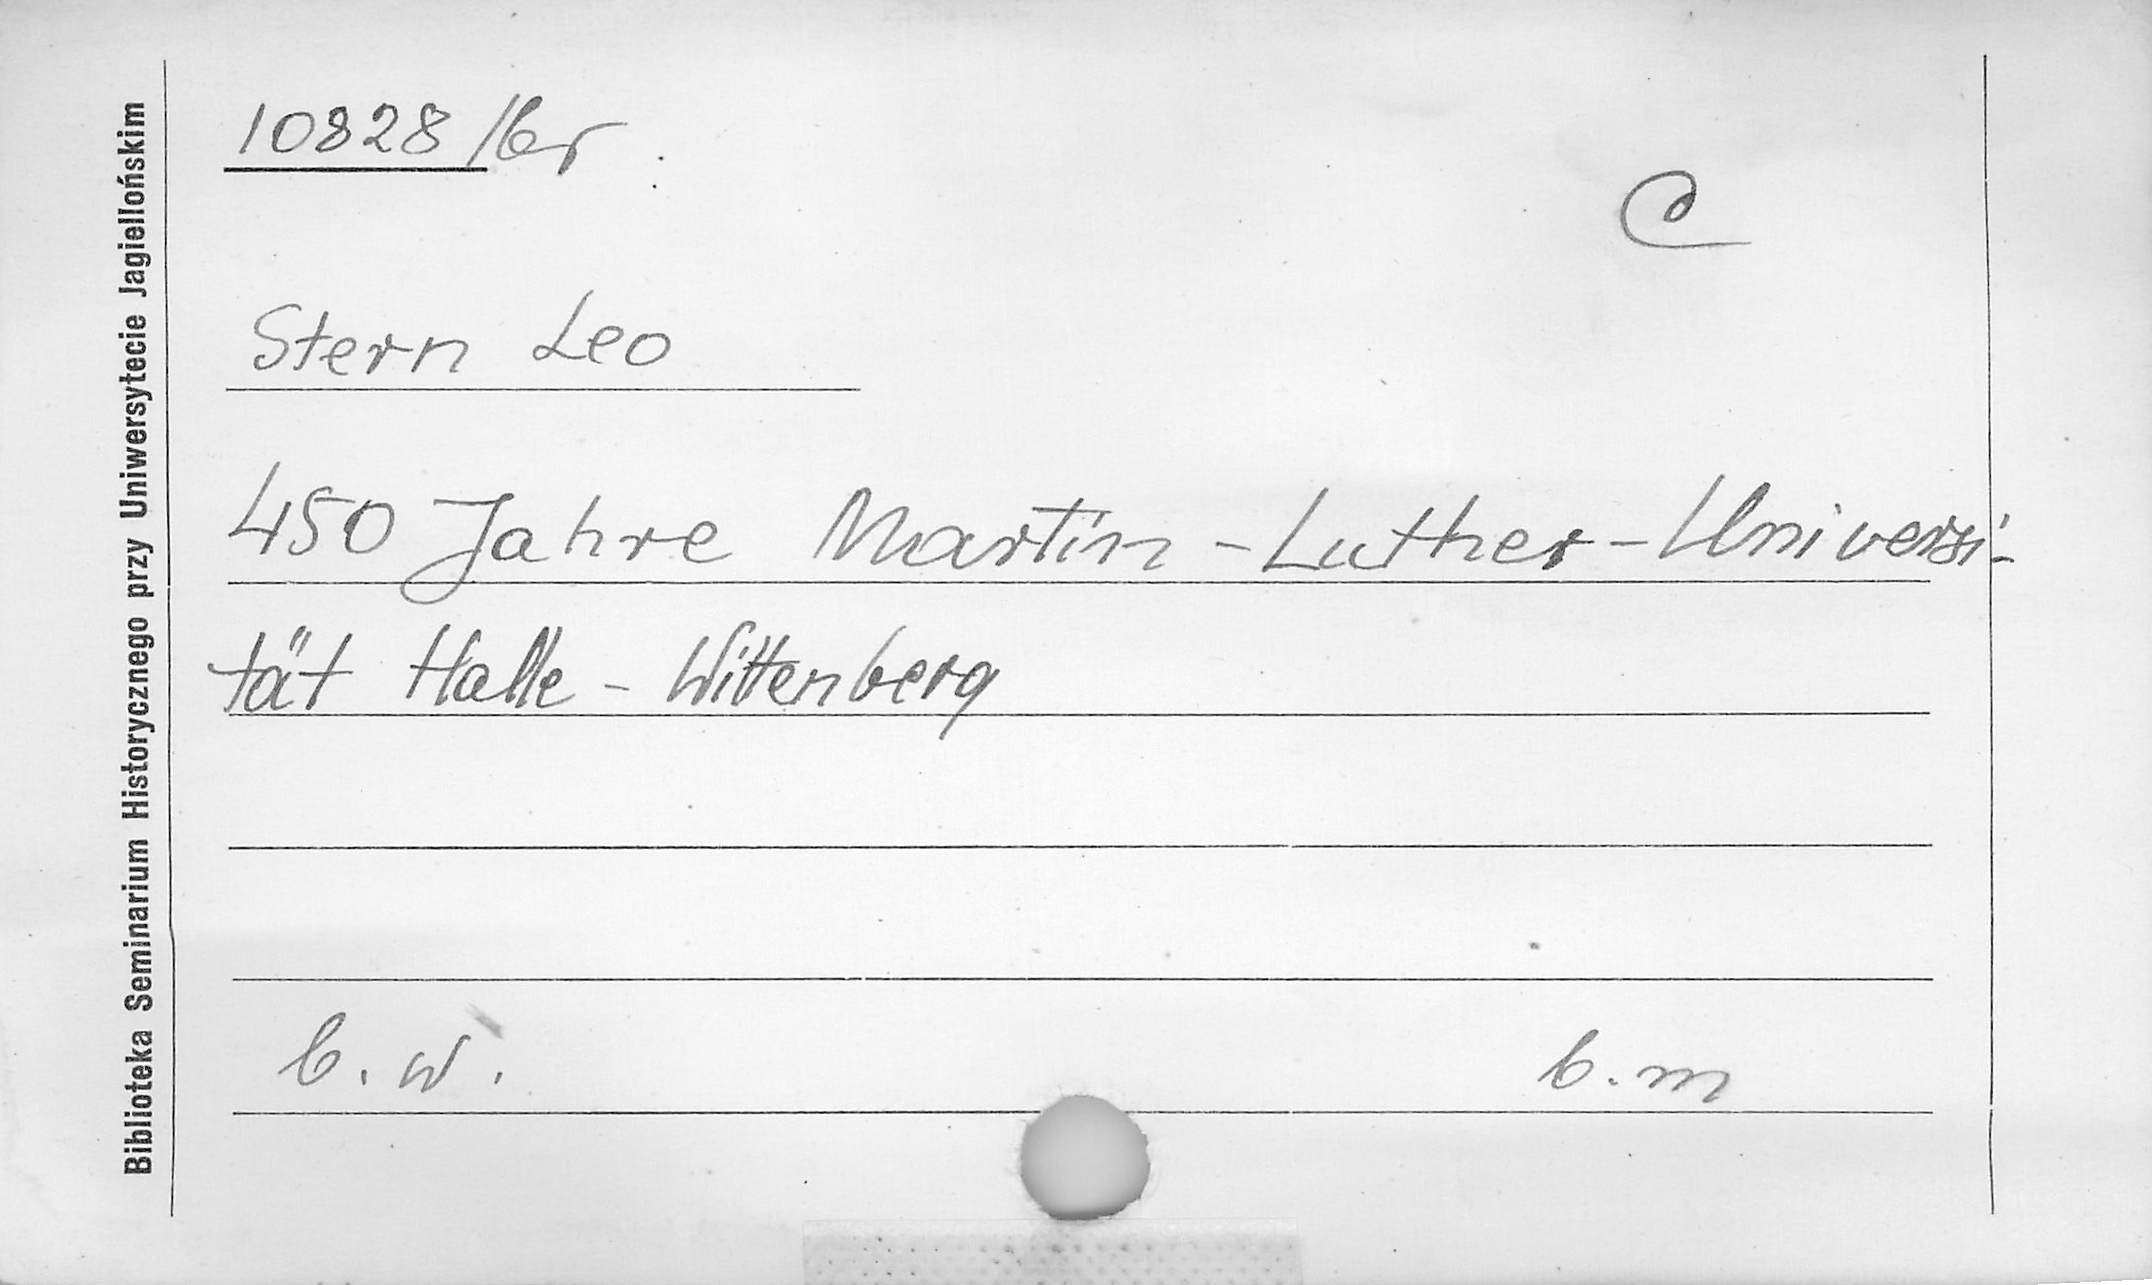 Biblioteka Seminarium Historycznego przy Uniwersytecie Jagiellońskim
10828/br
C
Stern Leo
450 Jahre Martin-Luther-Universi-
tät Halle - Wittenberg
b. w.
b. m